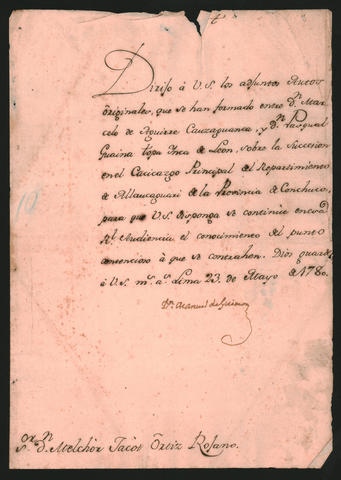 Dirijo à V.S. los adjuntos Autos
originales, que se han formado entre Dn. Mar-
celo de Aguirre Cauzaguanca, y Dn. Pasqual
Guaina topa Inca de Leon, sobre la Succesion
en el Cacicazgo Principal del Repartimiento
de Allaucaguari de la Provincia de Conchucos,
para que V.S. disponga se continúe en esa Rl.
Audiencia el conocimiento del punto
contencioso à que se contrahen. Dios guarde
à V.S. ms. as. Lima 23. de Mayo de 1780.
Dn. Manuel de
Sor. Dn. Melchor Jacot Ortiz Rojano.